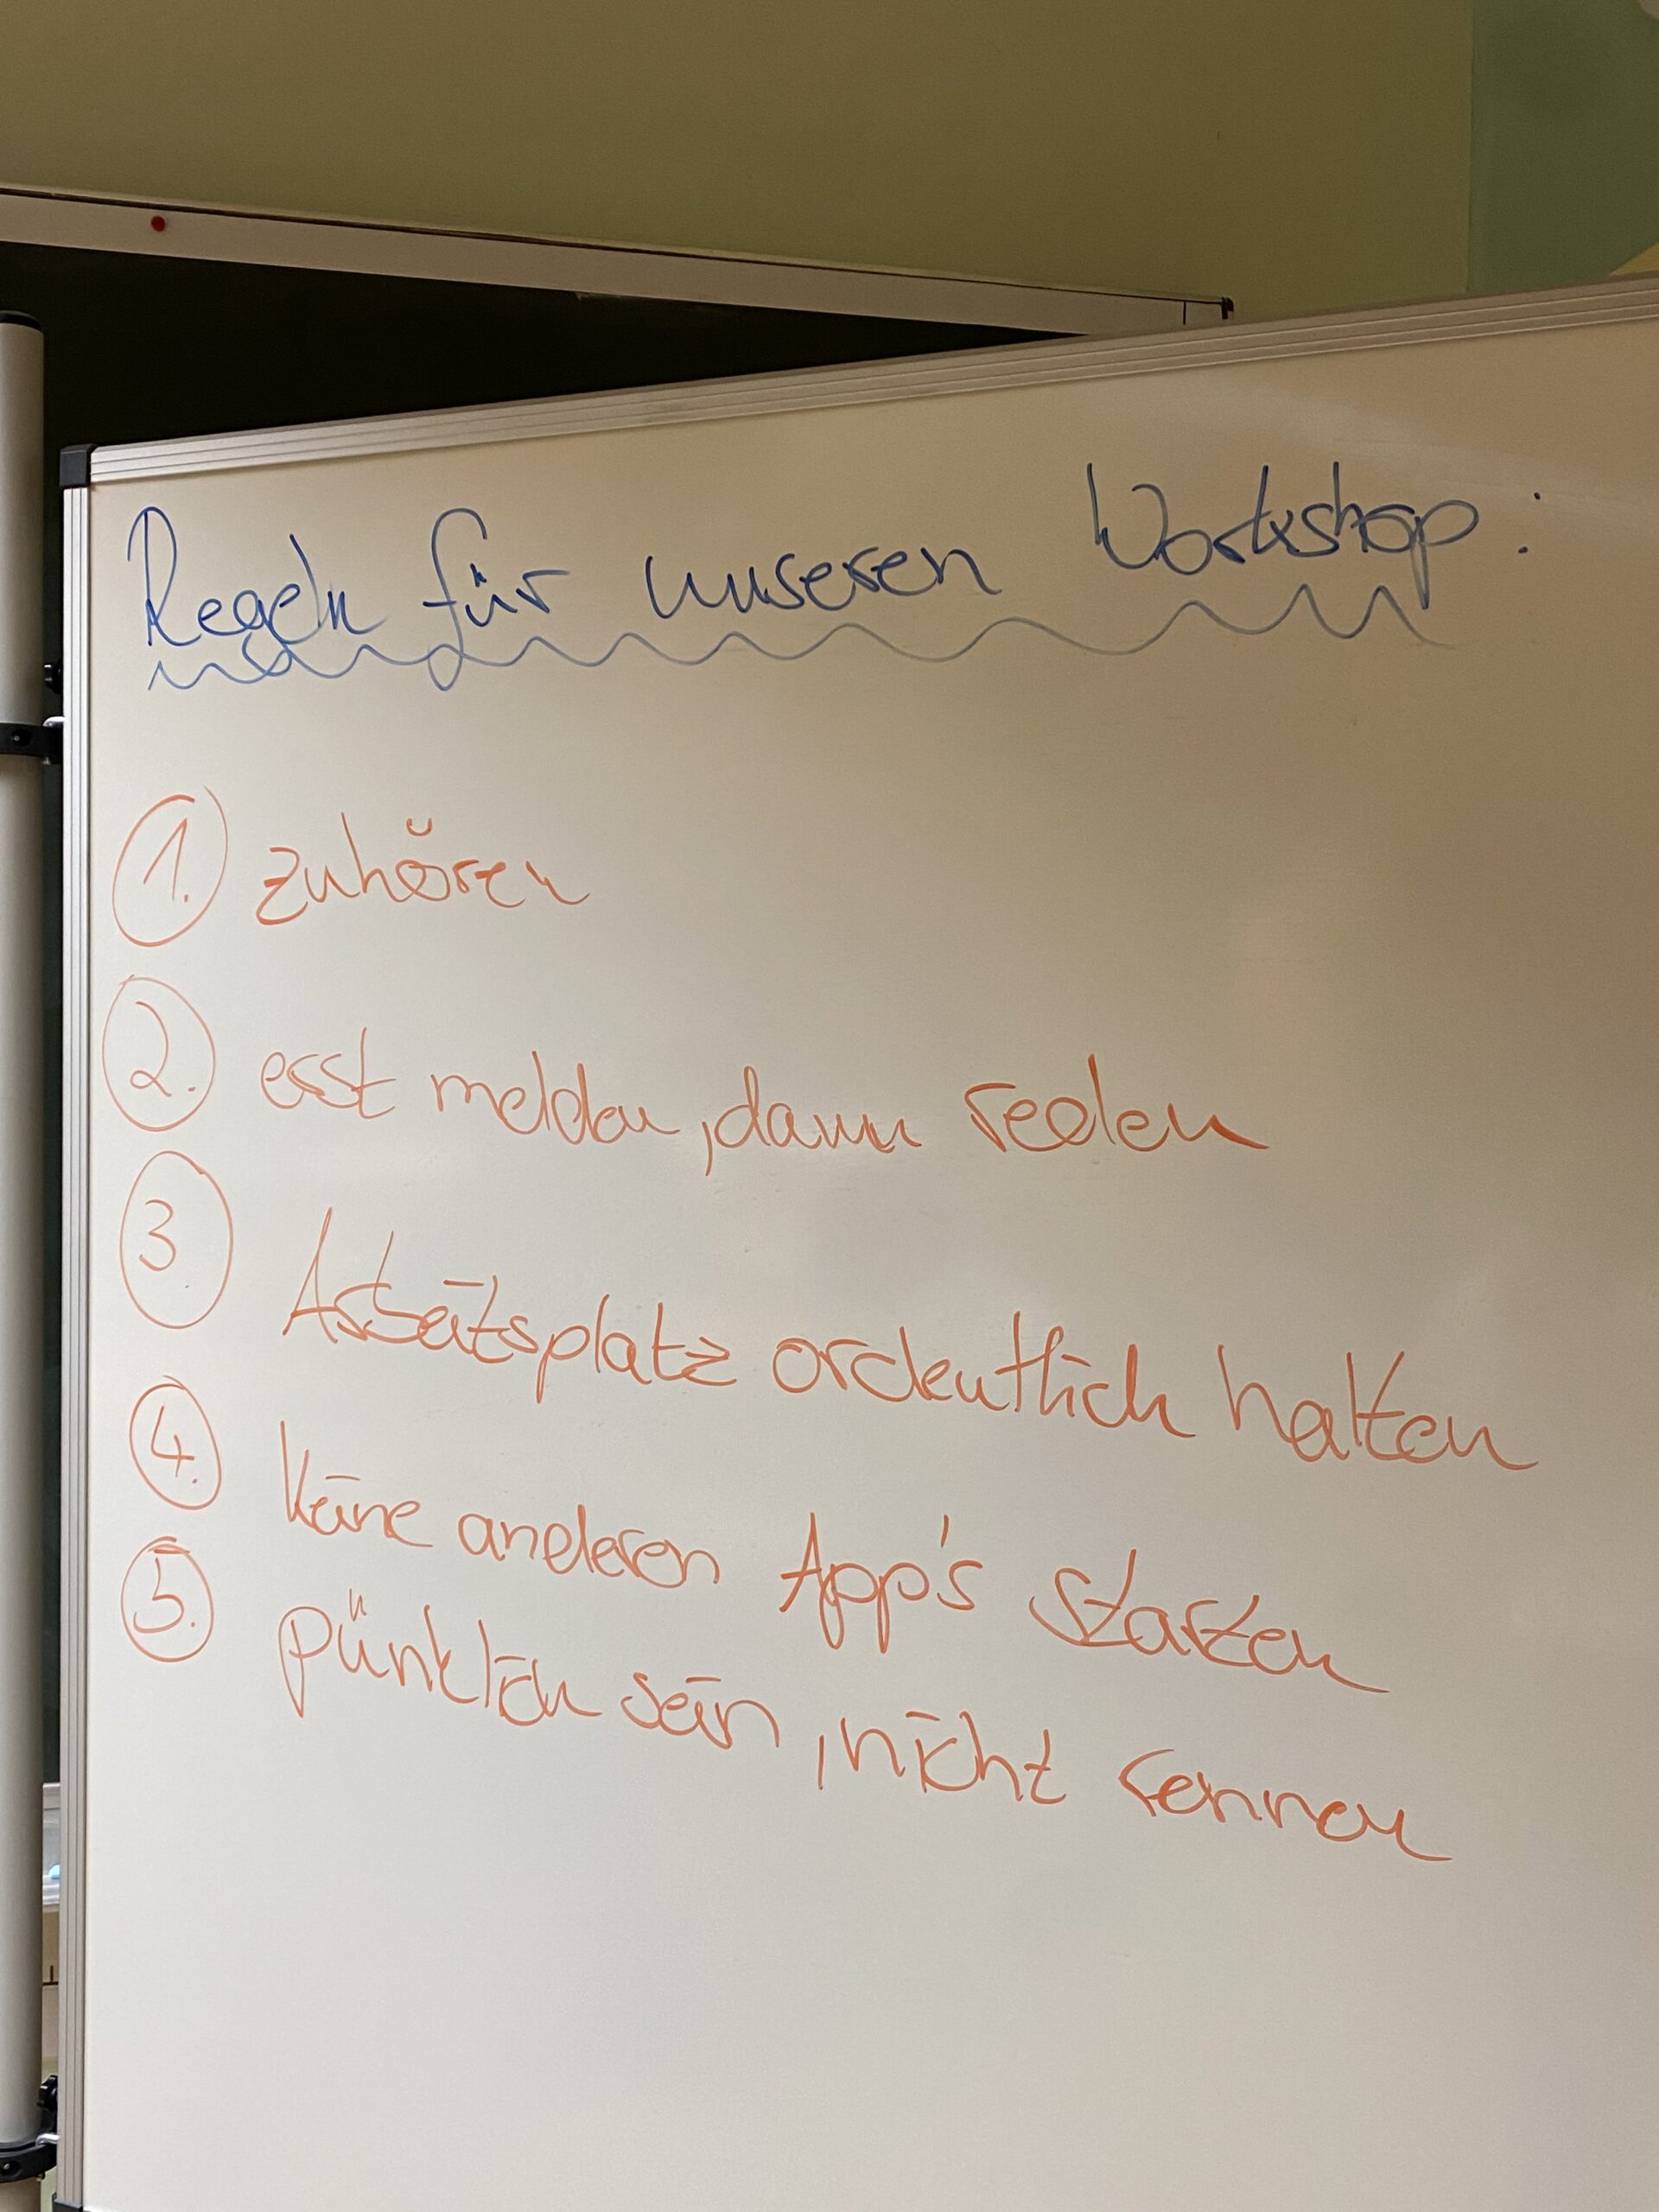 Regeln für unseren Workshop:
1. zuhören
2. erst melden, dann reden
3. Arbeitsplatz ordentlich halten
4. keine anderen App's starten
5. pünktlich sein, nicht rennen